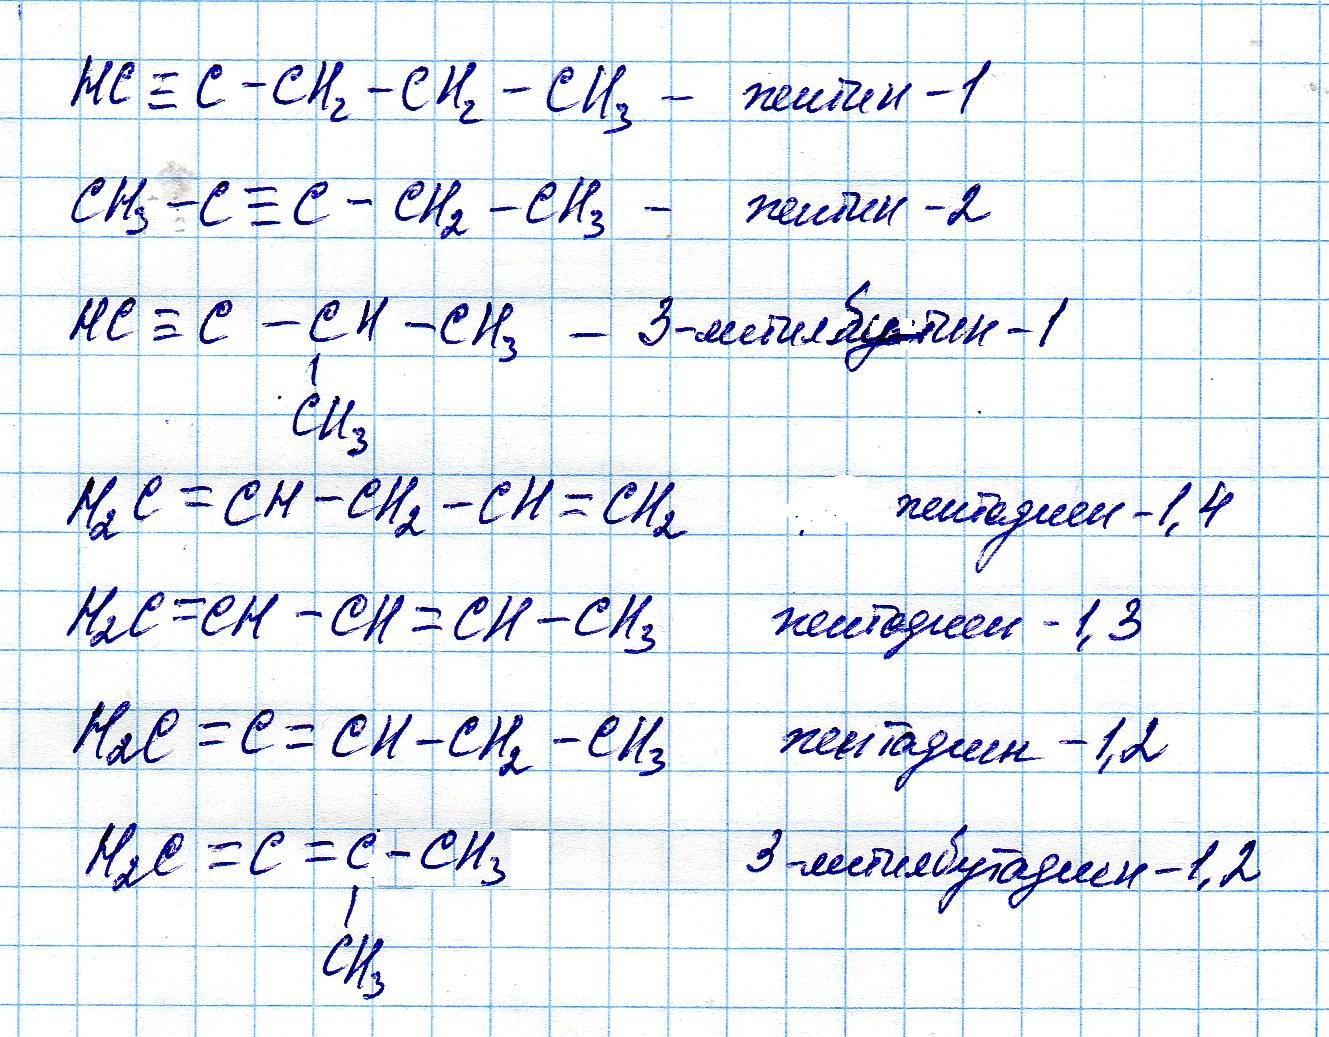 HC≡C-CH₂-CH₂-CH₃ - пентин-1
CH₃-C≡C-CH₂-CH₃ - пентин-2
HC≡C-CH-CH₃ - 3-метилбутин-1
CH₃
H₂C=CH-CH₂-CH=CH₂ пентадиен-1,4
H₂C=CH-CH=CH-CH₃ пентадиен-1,3
H₂C=C=CH-CH₂-CH₃ пентадиен-1,2
H₂C=C=C-CH₃ 3-метилбутадиен-1,2
CH₃